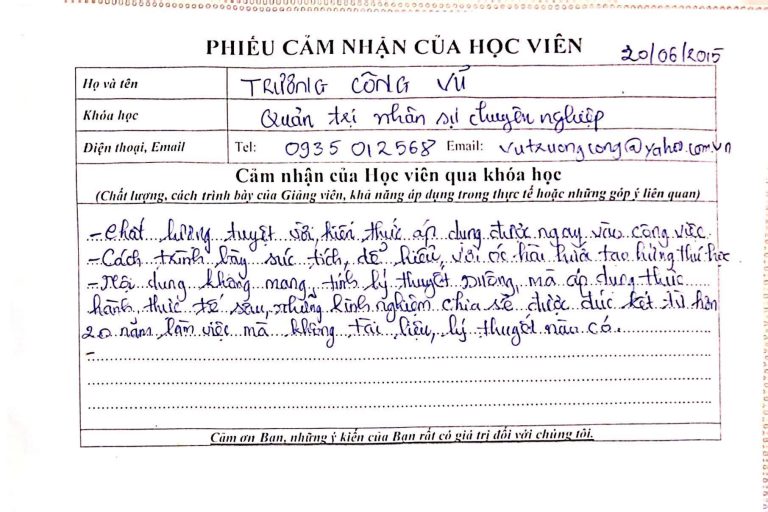 PHIẾU CẢM NHẬN CỦA HỌC VIÊN
20/06/2015
Họ và tên TRƯƠNG CÔNG VŨ
Khóa học Quản trị nhân sự chuyên nghiệp
Điện thoại, Email Tel: 0935 012568 Email: vutruongcong@yahoo.com.vn
Cảm nhận của Học viên qua khóa học
(Chất lượng, cách trình bày của Giảng viên, khả năng áp dụng trong thực tế hoặc những góp ý liên quan)
- Chất lượng tuyệt vời, kiến thức áp dụng được ngay vào công việc
- Cách trình bày súc tích, dễ hiểu, với óc hài hước tạo hứng thú học
- Nội dung không mang tính lý thuyết suông, mà áp dụng thực
hành thực tế sau, những kinh nghiệm chia sẻ được đúc kết từ hơn
20 năm làm việc mà không tài liệu, lý thuyết nào có.
-
Cảm ơn Bạn, những ý kiến của Bạn rất có giá trị đối với chúng tôi.